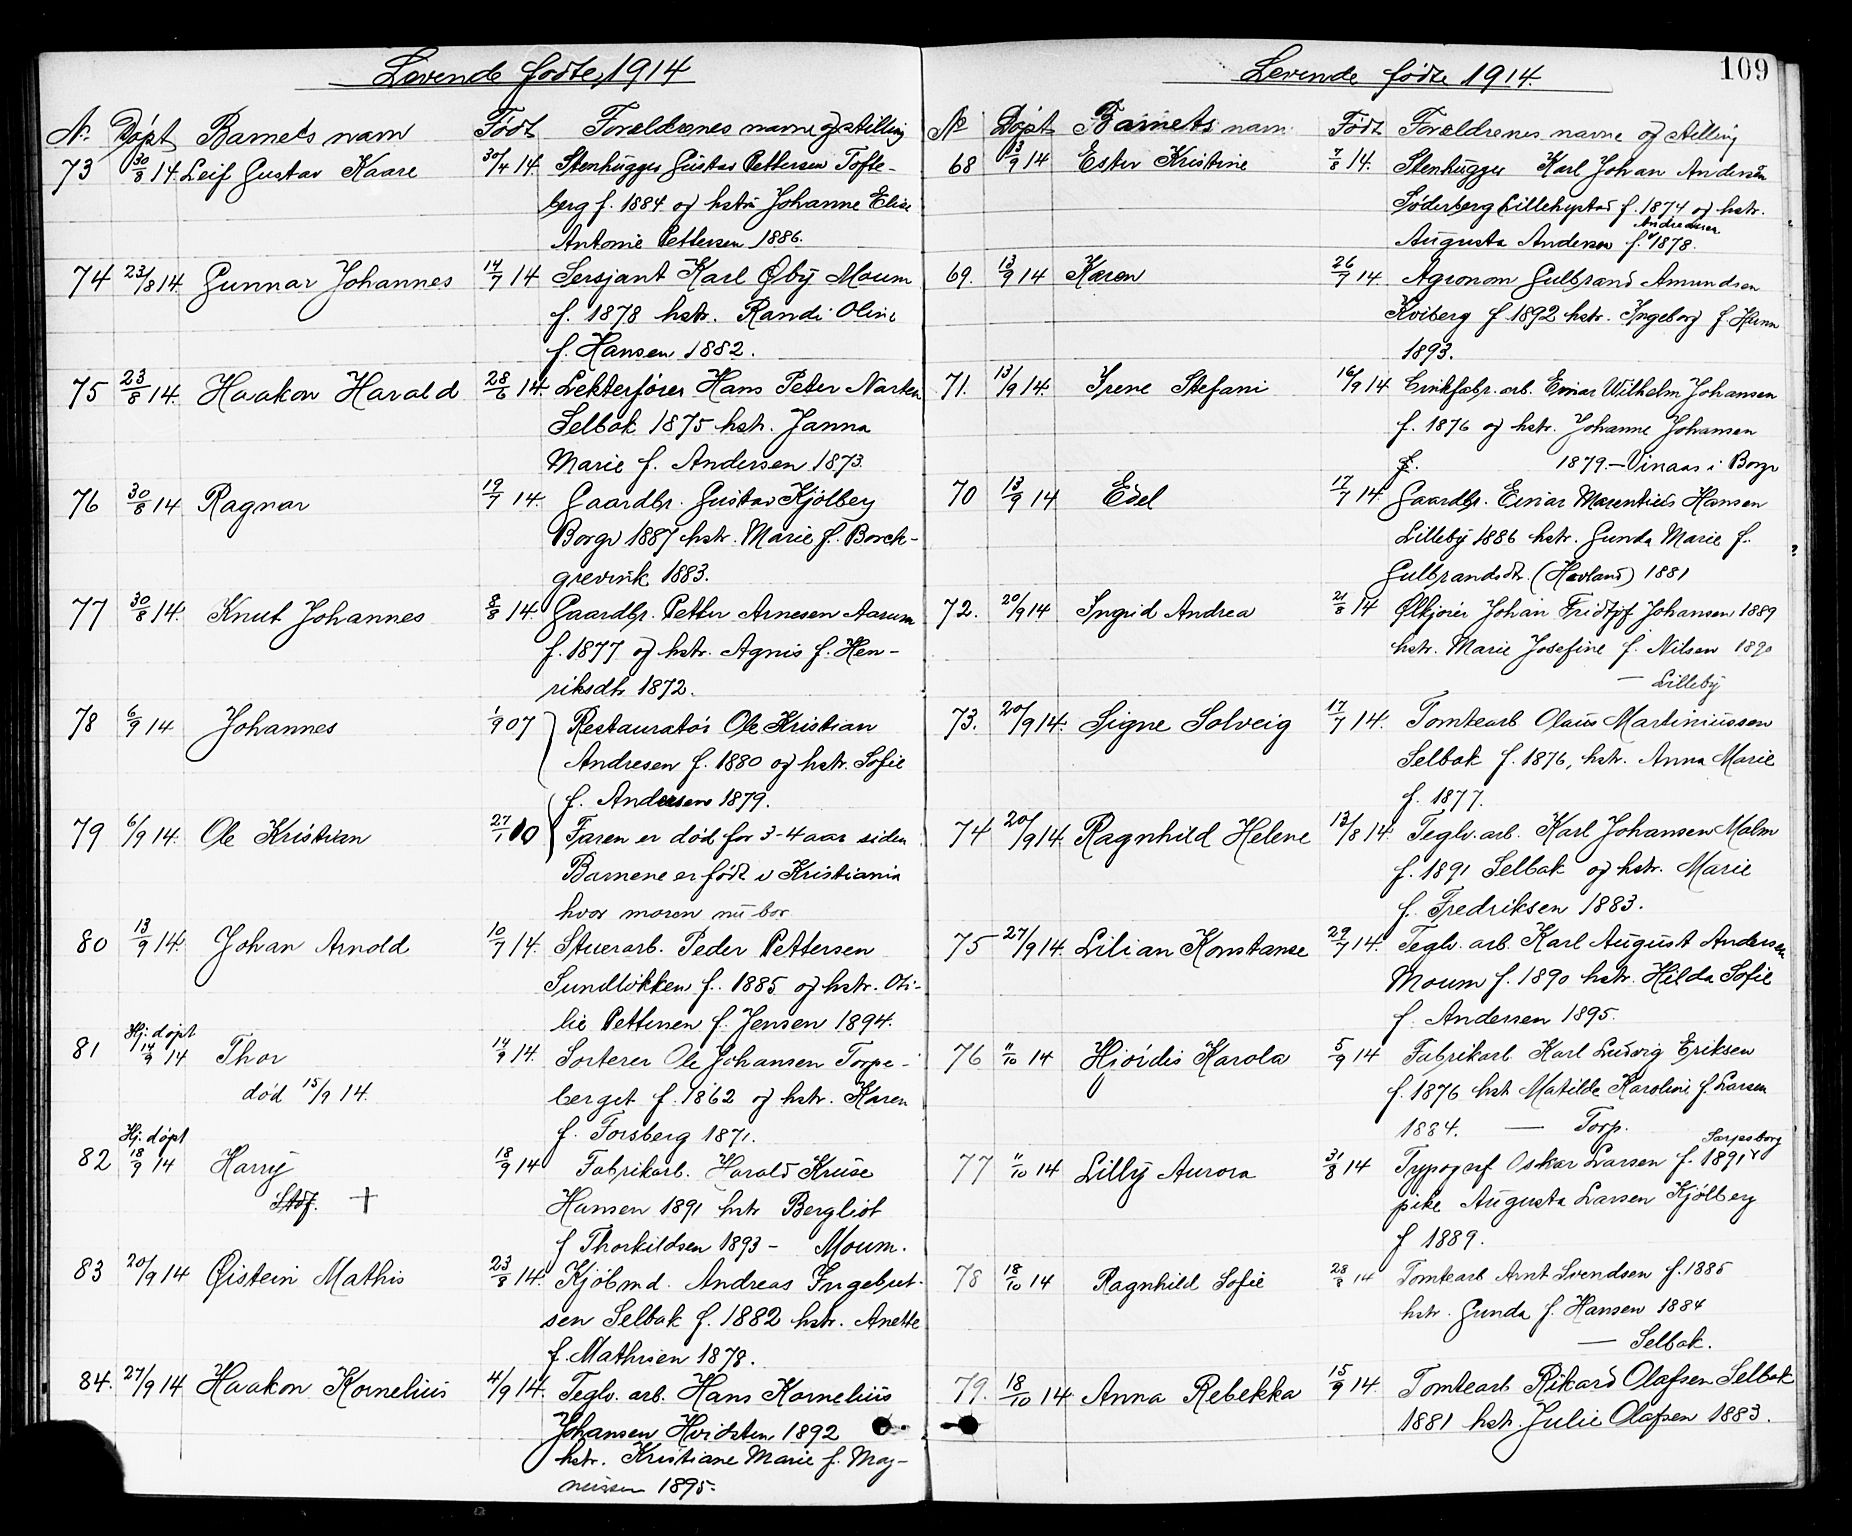 Levende fødte, 1914
Nr. Døpt Barnets navn Født Forældrenes navne og stilling
73 30/8 14. Leif Gustav Kaare 30/4 14. Stenhugger Gustav Pettersen Tofte-
berg f. 1884 og hstru Johanne Elise
Antonie Pettersen 1886.
74 23/8 14 Gunnar Johannes 14/7 14 Sersjant Karl Øby Moum
f. 1878 hstr. Randi Oline
f. Hansen 1882.
75 23/8 14. Haakon Harald 28/6 14. Lekterfører Hans Peter Narten
Selbak 1875 hstr. Janna
Marie f. Andersen 1873.
76 30/8 14 Ragnar 19/7 14. Gaardbr. Gustav Kjølberg
Borge 1887 hstr. Marie f. Borch-
grevink 1883.
77 30/8 14. Knut Johannes 8/8 14. Gaardbr. Petter Arnesen Aarum
f. 1877 og hstr. Agnis f. Hen-
riksdtr 1872.
78 6/9 14 Johannes 1/9 07 Restauratør Ole Kristian
Andresen f. 1880 og hstr. Sofie
f. Andersen 1879.
79 6/9 14. Ole Kristian 27/1 10 Faren er død for 3-4 aar siden
Barnene er født i Kristiania
hvor moren nu bor
80 13/9 14. Johan Arnold 10/7 14. Stuerarb. Peder Pettersen
Sundløkken f. 1885 og hstr. Oti-
lie Pettersen f. Jensen 1894.
Hj. døpt
81 14/9 14 Thor 14/9 14. Sorterer Ole Johansen Torpe-
død 15/9 14. berget f. 1862 og hstr. Karen
f. Forsberg 1871.
Hj. døpt
82 18/9 14 Harry 18/9 14 Fabrikarb. Harald Kruse
Stdf. † Hansen 1891 hstr Bergliot
f Thorkildsen 1893 - Moum.
83 20/9 14 Øistein Mathis 23/8 14. Kjøbmd. Andreas Ingebret-
sen Selbak f. 1882 hstr. Anette
f. Mathisen 1878.
84. 27/9 14 Haakon Kornelius 4/9 14. Teglv. arb. Hans Kornelius
Johansen Hvidsten 1892
hstr. Kristiane Marie f. Mag-
nussen 1895.
Levende fødte 1914.
109
No Døpt Barnets navn Født Forældrenes navne og stilling
68 13/9 14 Ester Kristine 7/8 14. Stenhugger Karl Johan Andersen
Søderberg Lillehystad f. 1874 og hstr.
Augusta Andersen f. Andreasen 1878.
69. 13/9 14 Karen 26/7 14. Agronom Gulbrand Amundsen
Kviberg f 1892 hstr. Ingeborg f. Hunn
1893.
71. 13/9 14. Irene Stefani 16/9 14 Cinkfabr. arb. Einar Wilhelm Johansen
f. 1876 og hstr. Johanne Johansen
f. 1879. — Vinaas i Borge
70 13/9 14 Edel 17/7 14. Gaardbr. Einar Marentius Hansen
Lilleby 1886 hstr. Gunda Marie f.
Gulbrandsdtr. (Havland) 1881
72. 20/9 14 Ingrid Andrea 21/8 14 Ølkjører Johan Fridtjof Johansen 1889
hstr. Marie Josefine f. Nilsen 1890
— Lilleby
73. 20/9 14. Signe Solveig 17/7 14. Tomtearb Olaus Martiniussen
Selbak f. 1876, hstr. Anna Marie
f. 1877.
74 20/9 14. Ragnhild Helene 13/8 14. Teglv. arb. Karl Johansen Malm
f. 1891 Selbak og hstr. Marie
f. Fredriksen 1883.
75 27/9 14. Lilian Konstanse 29/7 14. Teglv. arb. Karl August Andersen
Moum f. 1890 hstr. Hilda Sofie
f. Andersen 1895.
76 11/10 14 Hjørdis Karola 5/9 14 Fabrikarb Karl Ludvig Eriksen
f. 1876 hstr Matilde Karoline f. Larsen
1884. — Torp.
77 11/10 14 Lilly Aurora 31/8 14 Typograf Oskar Larsen f. 1891 Sarpsborg
pike Augusta Larsen Kjølberg
f 1889.
78 18/10 14 Ragnhild Sofie 28/8 14 Tomtearb Arnt Svendsen f. 1885
hstr. Gunda f. Hansen 1884
— Selbak.
79. 18/10 14 Anna Rebekka 15/9 14. Tomtearb Rikard Olafsen Selbak
1881 hstr. Julie Olafsen 1883.